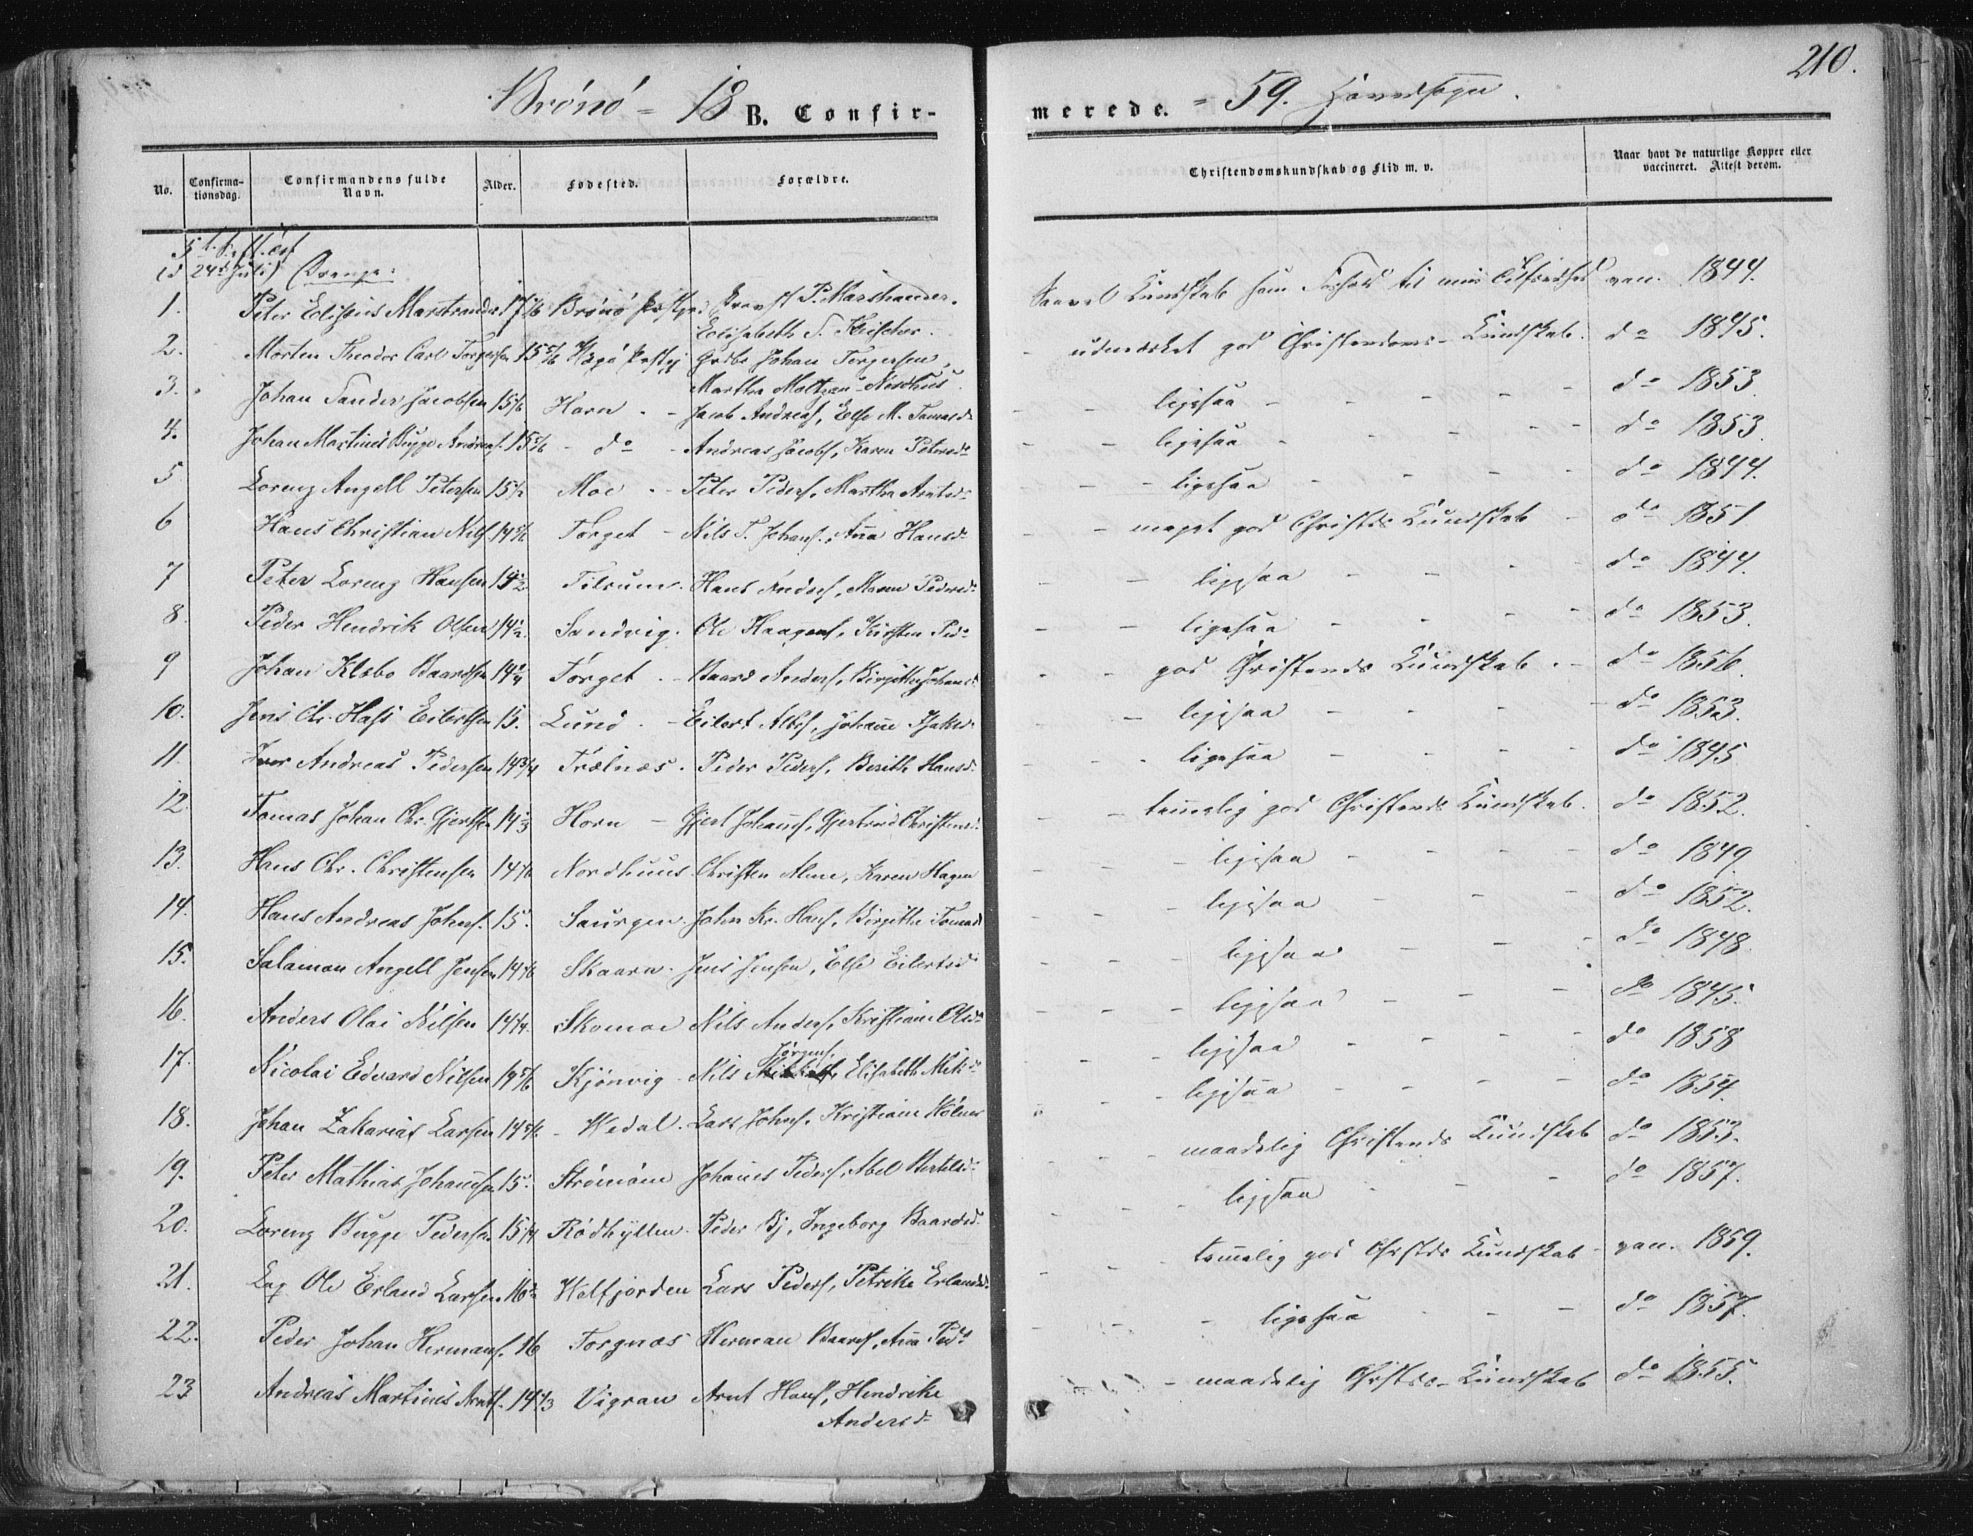 210.
Brönö = 18 B. Confir-merede. = 59. Hovedsogn.
No. Confirma-tionsdag. Confirmandens fulde Navn. Alder. Fødested. Forældre. Christendomskundskab og Flid m. v. Naar havt de naturlige Kopper eller vaccineret. Attest derom.
5te S. f. Trin.
(d 24de Juli) Drenge:
1. Peter Marstrander 17 Brönö Prstgd Provst P. Marstrander, Elisabeth S. Kundskab som Forhold til min Tilfredshed vac. 1844.
2. Morten Theodor Carl Torgersen 15 Vegö Prstgj Johan Torgersen, Martha Moltzau Nordhuus udmærket god Christendoms-Kundskab. do 1845.
3. Johan Sander Jacobsen 15 Horn - Jacob Andreas, Else M. Tomasd. ligesaa - do 1853.
4. Johan Martinus Bugge Andreas. 15 - do - Andreas Jacobs, Karen Petersdr ligesaa - do 1853.
5 Lorenz Angell Petersen 15½ Moe - Peter Peders, Martha Arntsd. ligesaa - do 1844.
6 Hans Christian Nils 14 Torget - Nils T. Johans, Ana Hansdr - meget god Christds Kundskab - do 1851
7 Peter Lorenz Hansen 14½ Tilrum. Hans Anders, Maren Pedersd. ligesaa - do 1844.
8. Peder Hendrik Olsen 14½ Sandvig. Ole Haagens, Kirsten Pedr ligesaa - do 1853.
9 Johan Klæbo Baardsen 14¼ Torget - Baard Anders, Birgitha Johansd. god Christends Kundskab. - do 1856.
10. Jens Chr. Hass Eilertsen 15. Lund - Eilert Albs, Johane Isaksd. ligesaa - do 1853.
11. Iver Andreas Pedersen 14¾ Trælnæs. Peder Peders, Berith Hansd. ligesaa - do 1845
12. Tomas Johan Chr. Gjertsen 14⅓ Horn - Gjert Johans, Gjertrud Christensd. temmelig god Christends Kundskab. do 1852.
13. Hans Chr. Christensen 14 Nordhuus Christen Alme, Karen Hagen ligesaa - do 1849.
14. Hans Andreas Johns. 15. Saurgen. John Kr. Hans, Birgitha Tomasd ligesaa - do 1852.
15. Salamon Angell Jensen 14 Skaarn. Jens Jensen, Else Eilertsd ligesaa - do 1848
16. Anders Olai Nilsen 14¼. Skomoe Nils Anders, Kristiane Olsdr ligesaa - do 1845.
17. Nicolai Edvard Nilsen 19 Kjönvig - Nils Jörgens, Elisabeth Mik ligesaa - do 1858
18. Johan Zakarias Larsen 14 - Wedal. Lars Johns, Kristiane ligesaa - do 1854.
19. Peter Mathias Johansen 15. Strömöen Johanes Peders, Abel Bertelsd. maadelig Christends Kundskab do 1853.
20. Lorenz Bugge Pedersen 15¼ Rödhyllen. Peder Bj, Ingeborg Baardsd. ligesaa - do 1857.
21. Ole Erland Larsen 16 Welfjorden Lars Peders, Petrike Erlandsd. temmelig god Chrstds Kundskab - vac. 1859.
22. Peder Johan Hermans. 16 Torgnæs Herman Baards, Ana Pedr ligesaa - do 1857.
23 Andreas Martinus Arnts. 14⅓ Vigran Arnt Hans, Hendrike Andersdr - maadelig Chrstds-Kundskab do 1855.